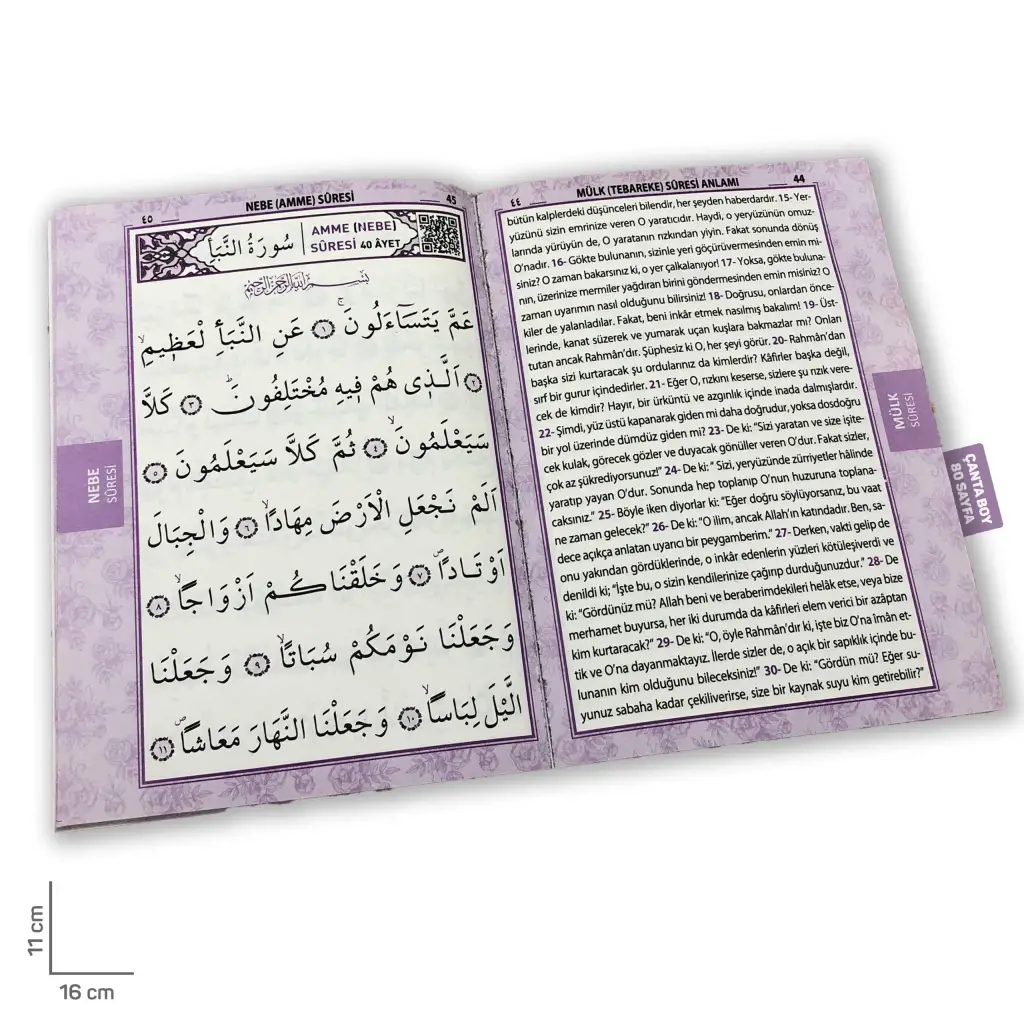 MÜLK (TEBAREKE) SÛRESİ ANLAMI
٤٤
44
bütün kalplerdeki düşünceleri bilendir, her şeyden haberdardır. 15- Yer-
yüzünü sizin emrinize veren O yaratıcıdır. Haydi, o yeryüzünün omuz-
larında yürüyün de, O yaratanın rızkından yiyin. Fakat sonunda dönüş
O'nadır. 16- Gökte bulunanın, sizinle yeri göçürüvermesinden emin mi-
siniz? O zaman bakarsınız ki, o yer çalkalanıyor! 17- Yoksa, gökte buluna-
nın, üzerinize mermiler yağdıran birini göndermesinden emin misiniz? O
zaman uyarımın nasıl olduğunu bilirsiniz! 18- Doğrusu, onlardan önce-
kiler de yalanladılar. Fakat, beni inkâr etmek nasılmış bakalım! 19- Üst-
lerinde, kanat süzerek ve yumarak uçan kuşlara bakmazlar mı? Onları
tutan ancak Rahmân'dır. Şüphesiz ki O, her şeyi görür. 20- Rahmân'dan
başka sizi kurtaracak şu ordularınız da kimlerdir? Kâfirler başka değil,
sırf bir gurur içindedirler. 21- Eğer O, rızkını keserse, sizlere şu rızık vere-
cek de kimdir? Hayır, bir ürküntü ve azgınlık içinde inada dalmışlardır.
22- Şimdi, yüz üstü kapanarak giden mi daha doğrudur, yoksa dosdoğru
bir yol üzerinde dümdüz giden mi? 23- De ki: "Sizi yaratan ve size işite-
cek kulak, görecek gözler ve duyacak gönüller veren O'dur. Fakat sizler,
çok az şükrediyorsunuz!" 24- De ki: " Sizi, yeryüzünde zürriyetler hâlinde
yaratıp yayan O'dur. Sonunda hep toplanıp O'nun huzuruna toplana-
caksınız." 25- Böyle iken diyorlar ki: "Eğer doğru söylüyorsanız, bu vaat
ne zaman gelecek?" 26- De ki: "O ilim, ancak Allah'ın katındadır. Ben, sa-
dece açıkça anlatan uyarıcı bir peygamberim." 27- Derken, vakti gelip de
onu yakından gördüklerinde, o inkâr edenlerin yüzleri kötüleşiverdi ve
denildi ki; "İşte bu, o sizin kendilerinize çağırıp durduğunuzdur." 28- De
ki: "Gördünüz mü? Allah beni ve beraberimdekileri helâk etse, veya bize
merhamet buyursa, her iki durumda da kâfirleri elem verici bir azâptan
kim kurtaracak?" 29- De ki: "O, öyle Rahmân'dır ki, işte biz O'na îmân et-
tik ve O'na dayanmaktayız. İlerde sizler de, o açık bir sapıklık içinde bu-
lunanın kim olduğunu bileceksiniz!" 30- De ki: "Gördün mü? Eğer su-
yunuz sabaha kadar çekiliverirse, size bir kaynak suyu kim getirebilir?"
MÜLK
SÛRESİ
ÇANTA BOY
80 SAYFA
٤٥
NEBE (AMME) SÛRESİ
45
سُورَةُ النَّبَأِ
AMME (NEBE)
SÛRESİ 40 ÂYET
بِسْمِ اللّٰهِ الرَّحْمٰنِ الرَّحِيمِ
عَمَّ يَتَسَٓاءَلُونَۚ ﴿١﴾ عَنِ النَّبَأِ الْعَظِيمِۙ
﴿٢﴾ اَلَّذِي هُمْ فِيهِ مُخْتَلِفُونَۜ ﴿٣﴾ كَلَّا
سَيَعْلَمُونَۙ ﴿٤﴾ ثُمَّ كَلَّا سَيَعْلَمُونَ ﴿٥﴾
اَلَمْ نَجْعَلِ الْاَرْضَ مِهَاداًۙ ﴿٦﴾ وَالْجِبَالَ
اَوْتَاداًۖ ﴿٧﴾ وَخَلَقْنَاكُمْ اَزْوَاجاًۙ ﴿٨﴾
وَجَعَلْنَا نَوْمَكُمْ سُبَاتاًۙ ﴿٩﴾ وَجَعَلْنَا
الَّيْلَ لِبَاساًۙ ﴿١٠﴾ وَجَعَلْنَا النَّهَارَ مَعَاشاًۖ ﴿١١﴾
NEBE
SÛRESİ
11 cm
16 cm